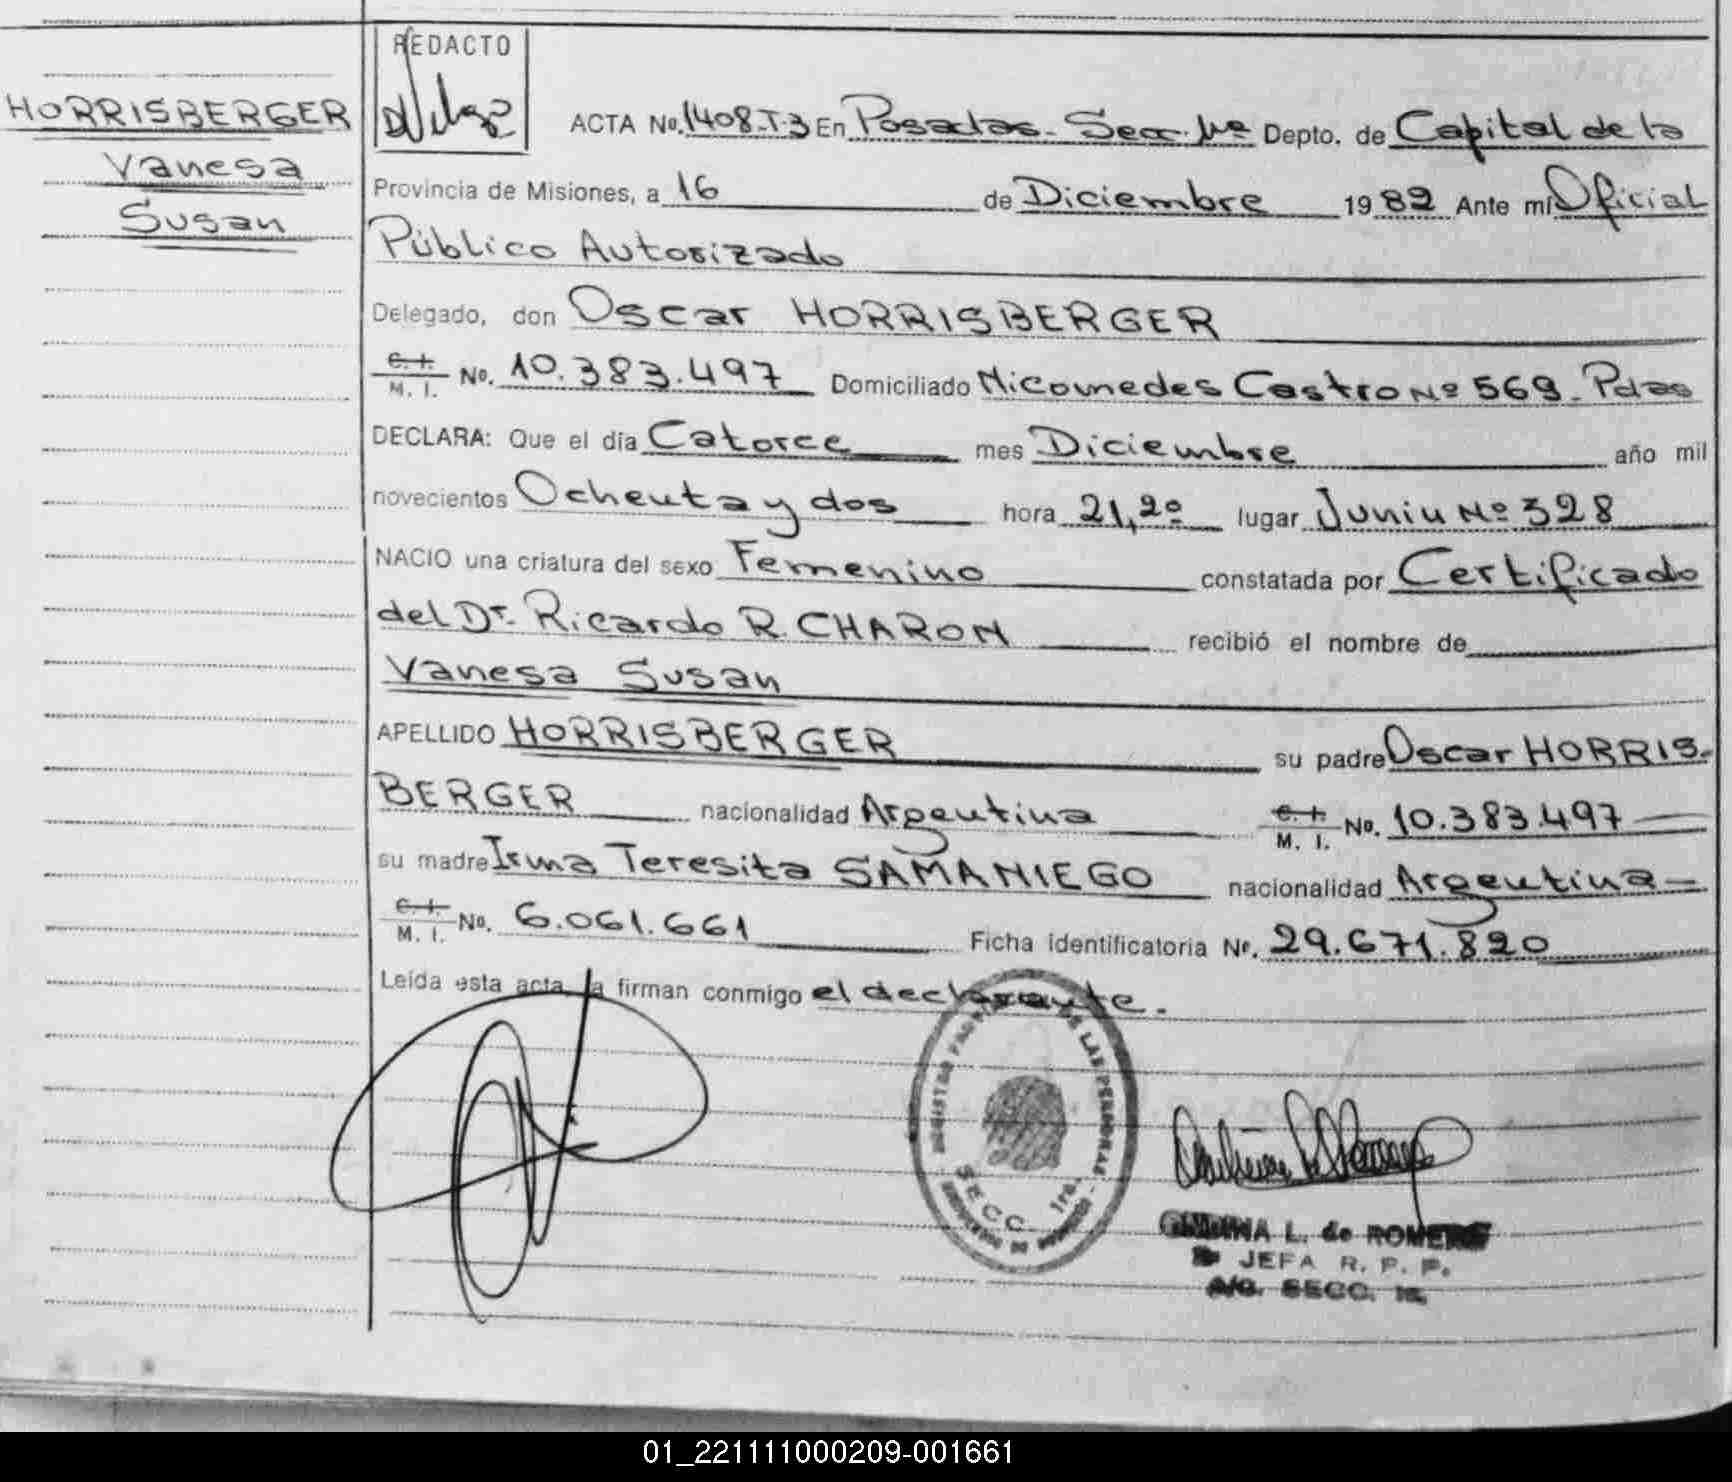 REDACTO
HORRISBERGER
Vanesa
Susan
ACTA No. 1408-T-3 En Posadas - Secc. 1ra Depto. de Capital de la
Provincia de Misiones, a 16 de Diciembre 1982 Ante mí Oficial
Público Autorizado
Delegado, don Oscar HORRISBERGER
C. I. M. I. No. 10.383.497 Domiciliado Nicomedes Castro Nº 569 - Pdas
DECLARA: Que el día Catorce mes Diciembre año mil
novecientos Ochenta y dos hora 21,20 lugar Junin Nº 328
NACIO una criatura del sexo Femenino constatada por Certificado
del Dr. Ricardo R. CHARON recibió el nombre de
Vanesa Susan
APELLIDO HORRISBERGER su padre Oscar HORRIS-
BERGER nacionalidad Argentina C. I. M. I. No. 10.383.497
su madre Irma Teresita SAMANIEGO nacionalidad Argentina
C. I. M. I. No. 6.061.661 Ficha identificatoria Nº. 29.671.820
Leída esta acta, la firman conmigo el declarante.
DE LAS PERSONAS
SECC. 1ra.
L. de ROMERO
JEFA R. P. P.
A/C. SECC. 1a.
01_221111000209-001661